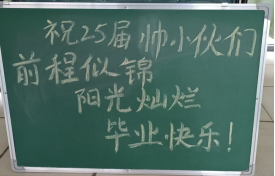 祝25届帅小伙们
前程似锦
阳光灿烂
毕业快乐!